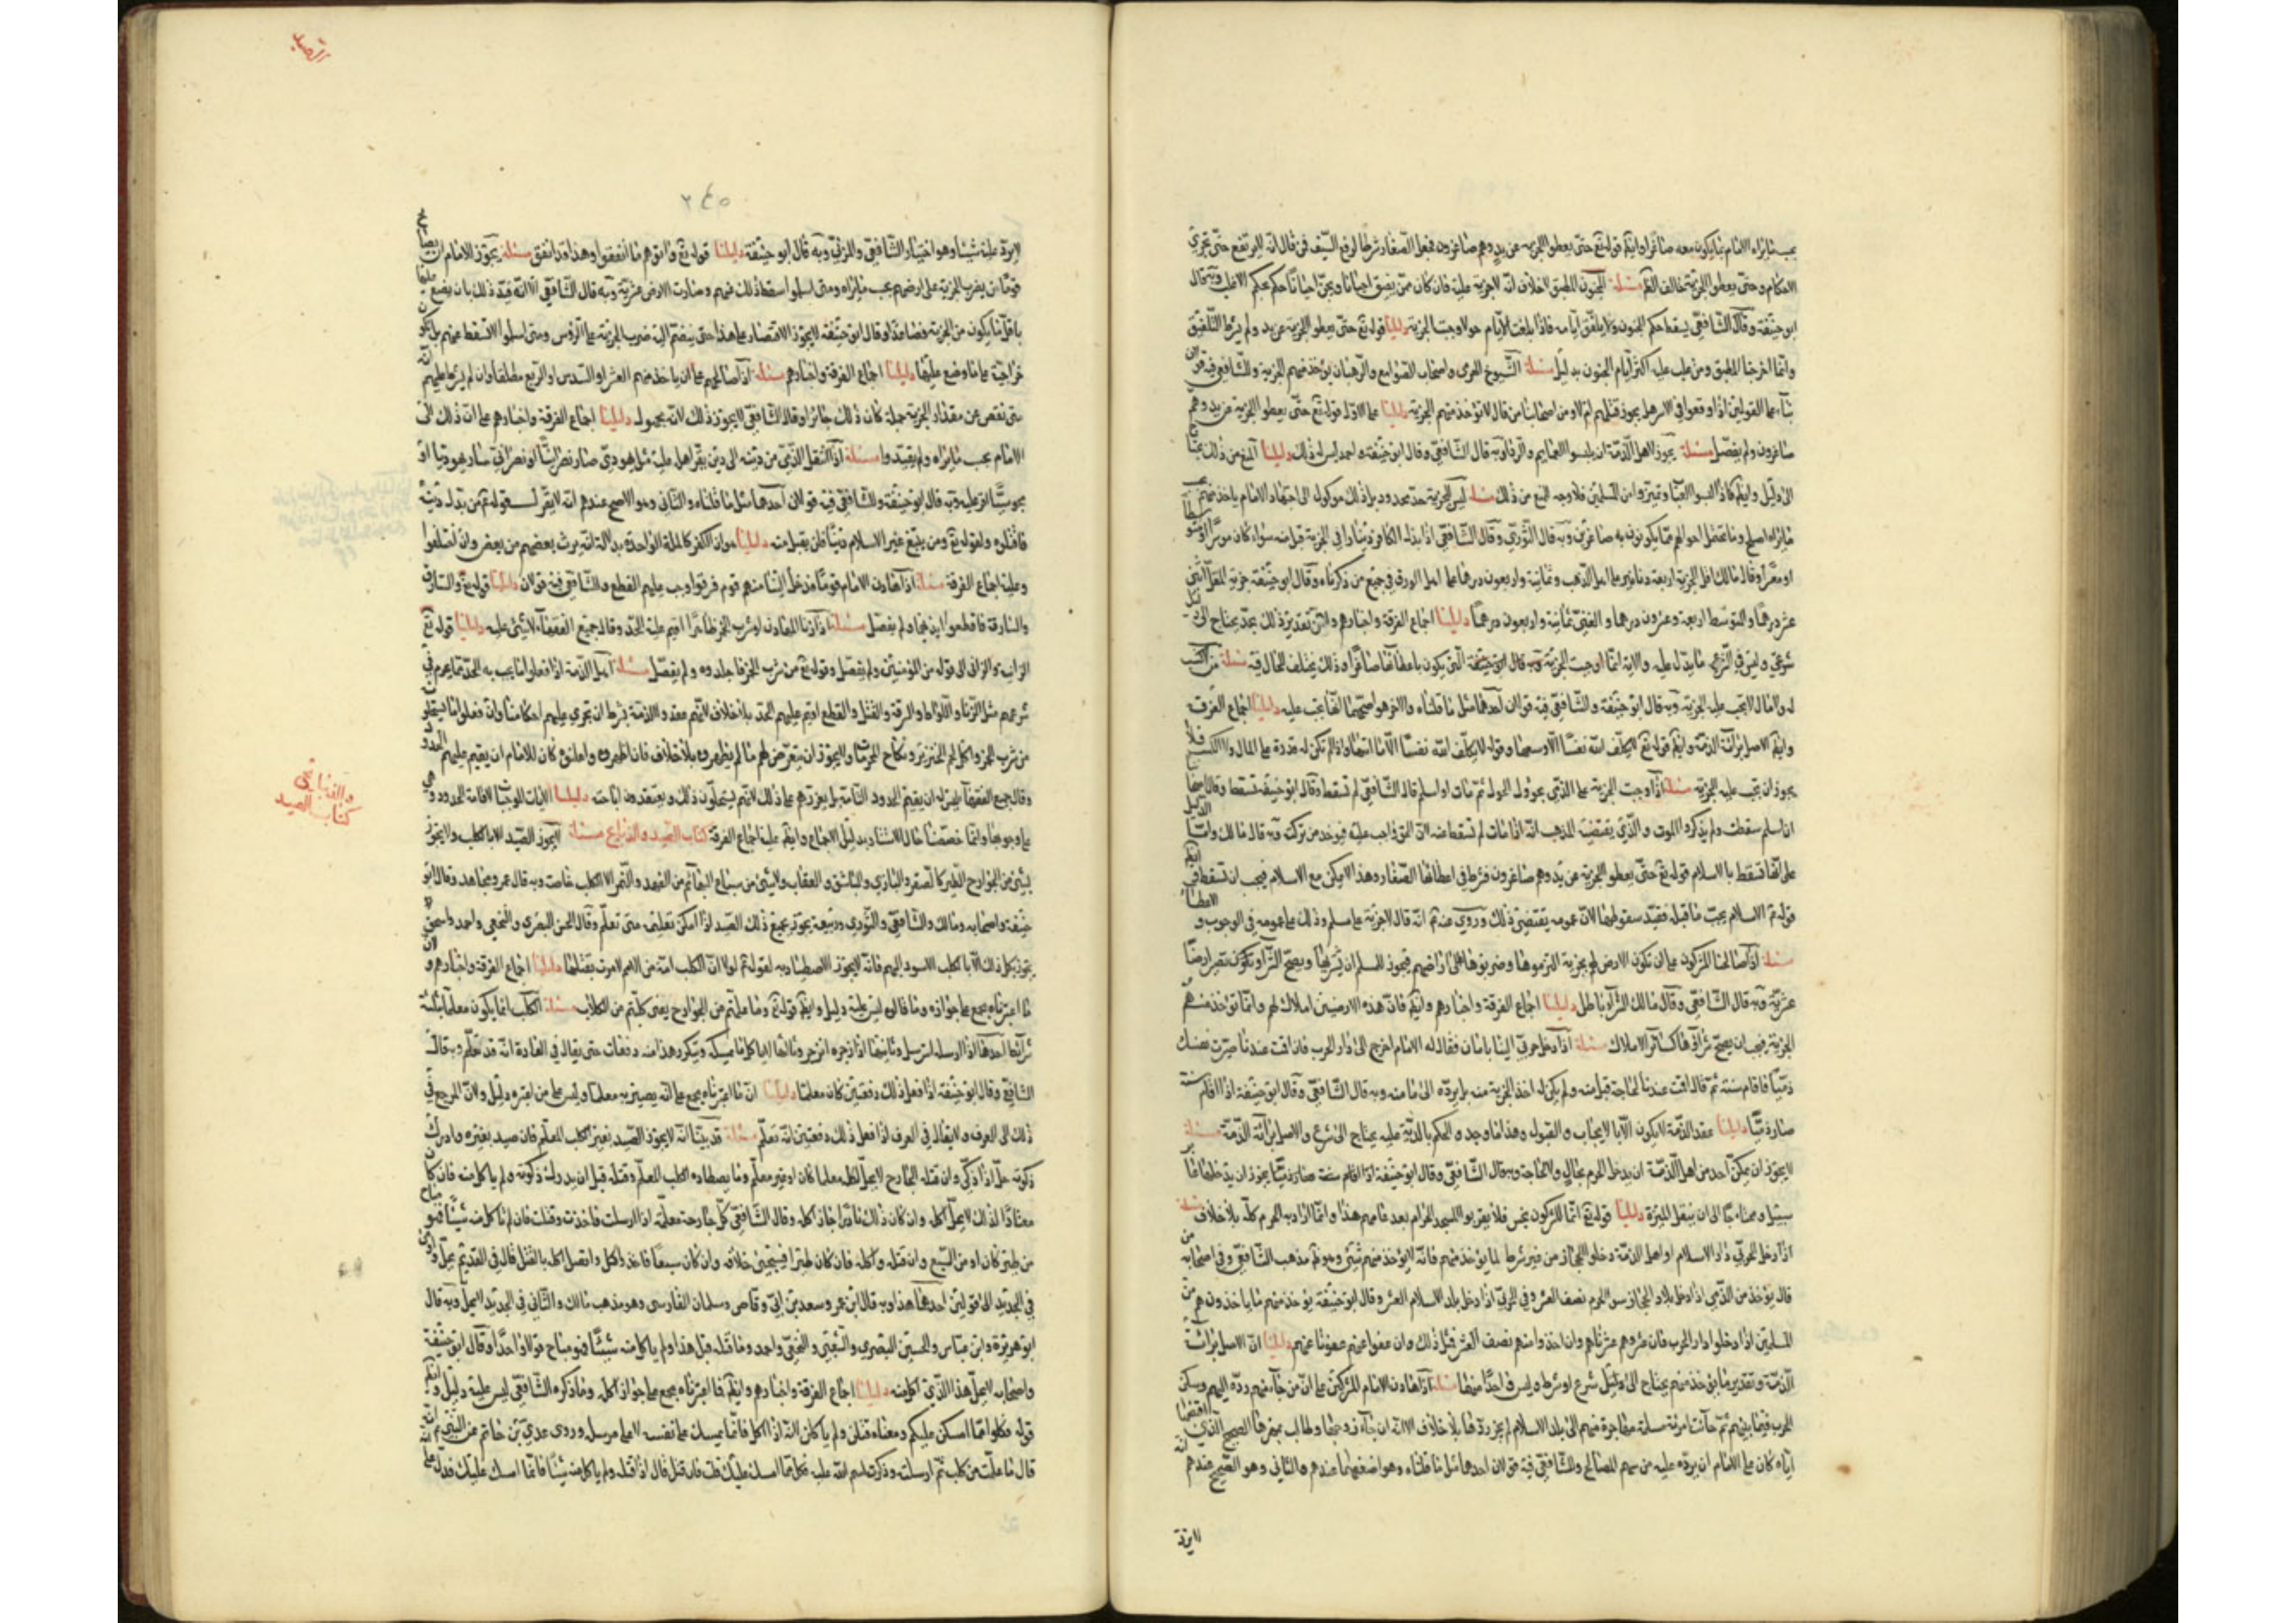 يجب ما يراه الامام بما يكون معه صاغرا وايضا قوله تع حتى يعطوا الجزية عن يد وهم صاغرون فجعل الصغار شرطا لرفع السيف فمن قال انه لا يرتفع حتى تجري
الاحكام وحتى يعطوا الجزية خالف الظم مسئلة المجنون المطبق لا خلاف انه لا جزية عليه فان كان ممن يفيق احيانا ويجن احيانا حكم بحكم الاغلب وبه قال
ابو حنيفة وقال الشافعي يسقط حكم المجنون ويلفق ايامه فاذا بلغت الايام حولا وجبت الجزية دليلنا قوله تع حتى يعطوا الجزية عن يد ولم يشرط التلفيق
وانما اخرجنا المطبق ومن غلب عليه اكثر ايام المجنون بدليل مسئلة الشيوخ الهرمى واصحاب الصوامع والرهبان يؤخذ منهم الجزية وللشافعي فيه قولان
بناء على القولين اذا وقعوا في الاسر هل يجوز قتلهم ام لا ومن اصحابنا من قال لا تؤخذ منهم الجزية دليلنا على الاول قوله تع حتى يعطوا الجزية عن يد وهم
صاغرون ولم يفصل مسئلة يجوز لاهل الذمة ان يلبسوا العمايم والرداء وبه قال الشافعي وقال ابو حنيفة واحمد ليس لهم ذلك دليلنا المنع من ذلك يحتاج
الى دليل وايضا فاذا لبسوا الغيار وتميزوا من المسلمين فلا وجه للمنع من ذلك مسئلة ليس للجزية حد محدود بل ذلك موكول الى اجتهاد الامام ياخذ منهم بحسب
ما يراه اصلح وما تحتمل احوالهم مما يكونون به صاغرين وبه قال الثوري وقال الشافعي اذا بذل الكافر دينارا في الجزية قبل منه سواء كان موسرا او متوسطا
او معسرا وقال مالك اقل الجزية اربعة دنانير على اهل الذهب وثمانية واربعون درهما على اهل الورق في جميع من ذكرناه وقال ابو حنيفة جزية المقل اثنى
عشر درهما والمتوسط اربعة وعشرون درهما والغني ثمانية واربعون درهما دليلنا اجماع الفرقة واخبارهم ولان تقدير ذلك بحد يحتاج الى دليل
شرعي وليس في الشرع ما يدل عليه والاية انما اوجبت الجزية التي يكون باعطائها صاغرا وذلك يختلف الحال فيه مسئلة من لا كسب
له ولا مال لا يجب عليه الجزية وبه قال ابو حنيفة وللشافعي فيه قولان احدهما مثل ما قلناه والاخر وهو اصحهما انها تجب عليه دليلنا اجماع الفرقة
وايضا الاصل براءة الذمة وايضا قوله تع لا يكلف الله نفسا الا وسعها وقوله لا يكلف الله نفسا الا ما اتيها واذا لم تكن له قدرة على المال ولا الكسب فلا
يجوز ان تجب عليه الجزية مسئلة اذا وجبت الجزية على الذمي بحؤول الحول ثم مات او اسلم قال الشافعي لم تسقط وقال ابو حنيفة تسقط وقال اصحابنا
ان اسلم سقطت ولم يذكروا الموت والذي يقتضيه المذهب انه اذا مات لم تسقط عنه لان الحق واجب عليه فيؤخذ من تركته وبه قال مالك دليلنا
على انها تسقط بالاسلام قوله تع حتى يعطوا الجزية عن يد وهم صاغرون فشرط في اعطائها الصغار وهذا لا يمكن مع الاسلام فيجب ان تسقط وايضا
قوله ع الاسلام يجب ما قبله فيفيد سقوطها لان عمومه يقتضي ذلك وروي عنه ع انه قال لا جزية على مسلم وذلك على عمومه في الوجوب والاعطاء
مسئلة اذا صالحنا المشركون على ان تكون الارض لهم بجزية التزموها وضربوها على اراضيهم فيجوز للمسلم ان يشتريها ويصح الشراء وتكون تصير ارضا
عشرية وبه قال الشافعي وقال مالك الشراء باطل دليلنا اجماع الفرقة واخبارهم وايضا فان هذه الارضين املاك لهم وانما تؤخذ منهم
الجزية فيجب ان يصح شراؤها كسائر الاملاك مسئلة اذا دخل حربي الينا بامان فقال له الامام اخرج الى دار الحرب فان اقمت عندنا صيرت نفسك
ذميا فاقام سنة ثم قال اقمت عندنا لحاجة قبل منه ولم يكن له اخذ الجزية منه بل يرده الى مأمنه وبه قال الشافعي وقال ابو حنيفة اذا اقام سنة
صار ذميا دليلنا عقد الذمة لا يكون الا بالايجاب والقبول وهذا ما وجد والحكم بالذمة عليه يحتاج الى شرع والاصل براءة الذمة مسئلة
لا يجوز ان يمكن احد من اهل الذمة ان يدخل الحرم بحال ولا لحاجة وبه قال الشافعي وقال ابو حنيفة
دليلنا قوله تع انما المشركون نجس فلا يقربوا المسجد الحرام بعد عامهم هذا وانما اراد به الحرم كله بلا خلاف مسئلة
اذا دخل الحربي دار الاسلام او اهل الذمة دخلوا الحجاز من غير شرط لما يؤخذ منهم فانه لا يؤخذ منهم شيء وهو ظم مذهب الشافعي وفي اصحابه من
قال يؤخذ من الذمي اذا دخل بلاد الحجاز سوى الحرم نصف العشر وفي الحربي اذا دخل بلد الاسلام العشر وقال ابو حنيفة يؤخذ منهم ما ياخذون هم من
المسلمين اذا دخلوا دار الحرب فان عشروهم عشرناهم وان اخذوا منهم نصف العشر فمثل ذلك وان عفوا عنهم عفونا عنهم دليلنا ان الاصل براءة
الذمة وتقدير ما يؤخذ منهم يحتاج الى دليل شرع او شرط وليس واحدا منهما مسئلة اذا هادن الامام المشركين على ان من جاء منهم رده اليهم وسكن
الحرب فيما بينهم ثم جائت امرئة مسلمة مهاجرة منهم الى بلد الاسلام لم يجز ردها بلا خلاف الا انه ان جاء زوجها وطالب بمهرها الصحيح الذي اقبضها
اياه كان على الامام ان يرده عليه من سهم المصالح وللشافعي فيه قولان احدهما مثل ما قلناه وهو اضعفهما عندهم والثاني وهو الصحيح عندهم انه
لا يرد
٢٤٥
لا يرد عليه شيئا وهو اختيار الشافعي والمزني وبه قال ابو حنيفة دليلنا قوله تع واتوهم ما انفقوا وهذا قد انفق مسئلة يجوز للامام ان يصالح
قوما ان يضرب الجزية على ارضهم بحسب ما يراه ومتى اسلموا سقط ذلك عنهم وصارت الارض عشرية وبه قال الشافعي الا انه قيد ذلك بان يضع عليها
ما اقل ما يكون من الجزية فصاعدا وقال ابو حنيفة لا يجوز الاقتصار على هذا حتى ينضم اليه ضرب الجزية على الرؤس ومتى اسلموا لا تسقط عنهم بل يكون
خراجية على ما وضع عليها دليلنا اجماع الفرقة واخبارهم مسئلة اذا صالحهم على ان ياخذ منهم العشر او السدس او الربع مطلقا وان لم يشرط عليهم انه
متى نقص عن مقدار الجزية جملة كان ذلك جائزا وقال الشافعي لا يجوز ذلك لانه مجهول دليلنا اجماع الفرقة واخبارهم على ان ذلك الى
الامام بحسب ما يراه ولم يقيدوا مسئلة اذا انتقل الذمي من دينه الى دين يقر اهله عليه مثل يهودي صار نصرانيا او نصراني صار يهوديا او
مجوسيا اقر عليه وبه قال ابو حنيفة وللشافعي فيه قولان احدهما مثل ما قلناه والثاني وهو الاصح عندهم انه لا يقر لقوله ع من بدل دينه
فاقتلوه ولقوله تع ومن يبتغ غير الاسلام دينا فلن يقبل منه دليلنا هو ان الكفر كالملة الواحدة بدلالة انه يرث بعضهم من بعض وان اختلفوا
وعليه اجماع الفرقة مسئلة اذا هادن الامام قوما فدخل الينا منهم قوم فسرقوا وجب عليهم القطع وللشافعي فيه قولان دليلنا قوله تع والسارق
والسارقة فاقطعوا ايديهما ولم يفصل مسئلة اذا زنا المهادن او شرب الخمر ظاهرا اقيم عليه الحد وقال جميع الفقهاء لا شئ عليه دليلنا قوله تع
الزانية والزاني الى قوله من المؤمنين ولم يفصل وقوله ع من شرب الخمر فاجلدوه ولم يفصل مسئلة اهل الذمة اذا فعلوا ما يجب به الحد مما يحرم في
شرعهم مثل الزنا واللواط والسرقة والقتل والقطع اقيم عليهم الحد بلا خلاف لانهم عقدوا الذمة بشرط ان تجري عليهم احكامنا وان فعلوا ما يستحلونه
من شرب الخمر واكل لحم الخنزير ونكاح المحرمات لا يجوز ان يتعرض لهم ما لم يظهروه بلا خلاف فان اظهروه واعلنوه كان للامام ان يقيم عليهم الحدود
وقال جميع الفقهاء ليس له ان يقيم الحدود التامة بل يعزرهم على ذلك لانهم يستحلون ذلك ويعتقدون اباحته دليلنا الآيات الموجبات لاقامة الحدود وهي
على وجوبها وانما خصصنا حال الاستتار بدليل الاجماع وايضا عليه اجماع الفرقة كتاب الصيد والذبايح مسئلة لا يجوز الصيد الا بالكلب ولا يجوز
بشئ من جوارح الطير كالصقر والبازي والباشق والعقاب ولا بشئ من سباع البهائم من الفهد والنمر الا الكلب خاصة وبه قال ابن عمر ومجاهد وقال ابو
حنيفة واصحابه ومالك والشافعي والثوري وربيعة يجوز بجميع ذلك الصيد اذا امكن تعليمه متى تعلم وقال الحسن البصري والنخعي واحمد واسحق
يجوز بكل ذلك الا بالكلب الاسود البهيم فانه لا يجوز الاصطياد به لقوله ع لولا ان الكلب امة من الامم لامرت بقتلها دليلنا اجماع الفرقة واخبارهم وان
ما اعتبرناه مجمع على جوازه وما قالوه ليس عليه دليل وايضا قوله تع وما علمتم من الجوارح يعني كلبتم من الكلاب مسئلة الكلب انما يكون معلما بثلثة
شرائط احدها اذا ارسله استرسل وثانيها اذا زجره انزجر وثالثها لا ياكل ما يمسكه ويتكرر هذا منه دفعات حتى يقال في العادة انه قد تعلم وبه قال
الشافعي وقال ابو حنيفة اذا فعل ذلك دفعتين كان معلما دليلنا ان ما اعتبرناه مجمع على انه يصير به معلما وليس على من اعتبره دليل ولان المرجع في
ذلك الى العرف ولا يقال في العرف اذا فعل ذلك دفعتين انه تعلم مسئلة قد بينا انه لا يجوز الصيد بغير الكلب المعلم فان صيد بغيره وادرك
ذكوته حل اذا ذكى وان قتله الجارح لا يحل اكله معلما كان او غير معلم وما يصطاده الكلب المعلم وقتله قبل ان يدرك ذكوته ولم ياكل منه فان كان
معتادا لذلك لا يحل اكله وان كان ذلك نادرا جاز اكله وقال الشافعي كل جارحة معلمة اذا ارسلت فاخذت وقتلت فان لم تاكل منه شيئا فهو مباح
من طير كان او من السبع وان قتله واكله فان كان طيرا فيجيئ خلافه وان كان سبعا فاخذ واكل واتصل اكله بالقتل قال في القديم يحل وفي
في الجديد الى قولين احدهما هذا وبه قال ابن عمر وسعد بن ابي وقاص وسلمان الفارسي وهو مذهب مالك والثاني في الجديد لا يحل وبه قال
ابو هريرة وابن عباس والحسن البصري والشعبي والنخعي واحمد وما قتله قبل هذا ولم ياكل منه شيئا فهو مباح قولا واحدا وقال ابو حنيفة
واصحابه لا يحل هذا الذي اكل منه دليلنا اجماع الفرقة واخبارهم وايضا فما اعتبرناه مجمع على جواز اكله وما ذكره الشافعي ليس عليه دليل وايضا
قوله فكلوا مما امسكن عليكم ومعناه قتلن ولم ياكلن لانه اذا اكل فانما يمسك على نفسه لا على مرسله وروى عدي بن حاتم عن النبي ع انه
قال ما علمت من كلب ثم ارسلت وذكرت اسم الله عليه فكل مما امسك عليك قلت فان قتل قال اذا قتله ولم ياكل منه شيئا فانما امسك عليك فدل على
والذبايح
كتاب الصيد